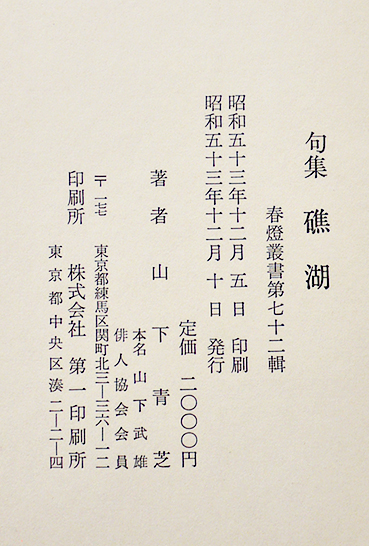 句集 礁湖
春燈叢書第七十二輯
昭和五十三年十二月 五 日 印刷
昭和五十三年十二月 十 日 発行
定価 二〇〇〇円
著者 山下青芝
本名 山下武雄
俳人協会会員
〒一七七 東京都練馬区関町北三―三六―一二
印刷所 株式会社 第一印刷所
東京都中央区湊二―二―四